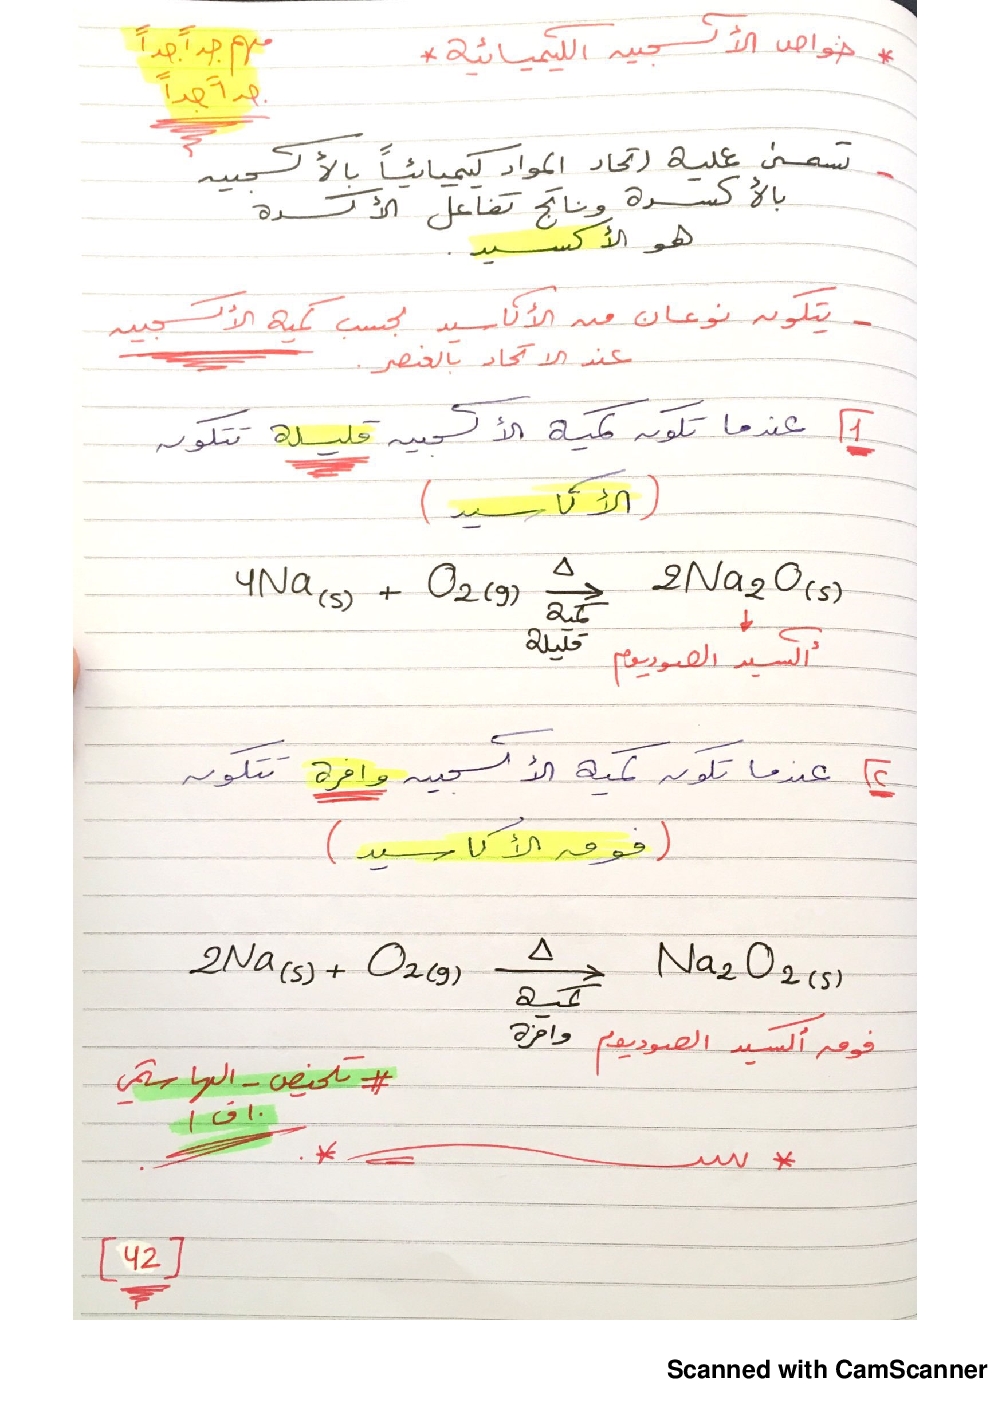 * خواص الأكسجين الكيميائية *
مهم جداً جداً
جداً جداً
- تسمى عملية اتحاد المواد كيميائياً بالأكسجين
بالأكسدة وناتج تفاعل الأكسدة
هو الأكسيد .
- يتكون نوعان من الأكاسيد بحسب كمية الأكسجين
عند الاتحاد بالعنصر .
1 عندما تكون كمية الأكسجين قليلة تتكون
(الأكاسيد)
4Na(s) + O2(g) Δ→ 2Na2O(s)
كمية
قليلة
↓
أكسيد الصوديوم
٢ عندما تكون كمية الأكسجين وافرة تتكون
(فوق الأكاسيد)
2Na(s) + O2(g) Δ→ Na2O2(s)
كمية
وافرة
فوق أكسيد الصوديوم
# تلخيص -
* *
[42]
Scanned with CamScanner